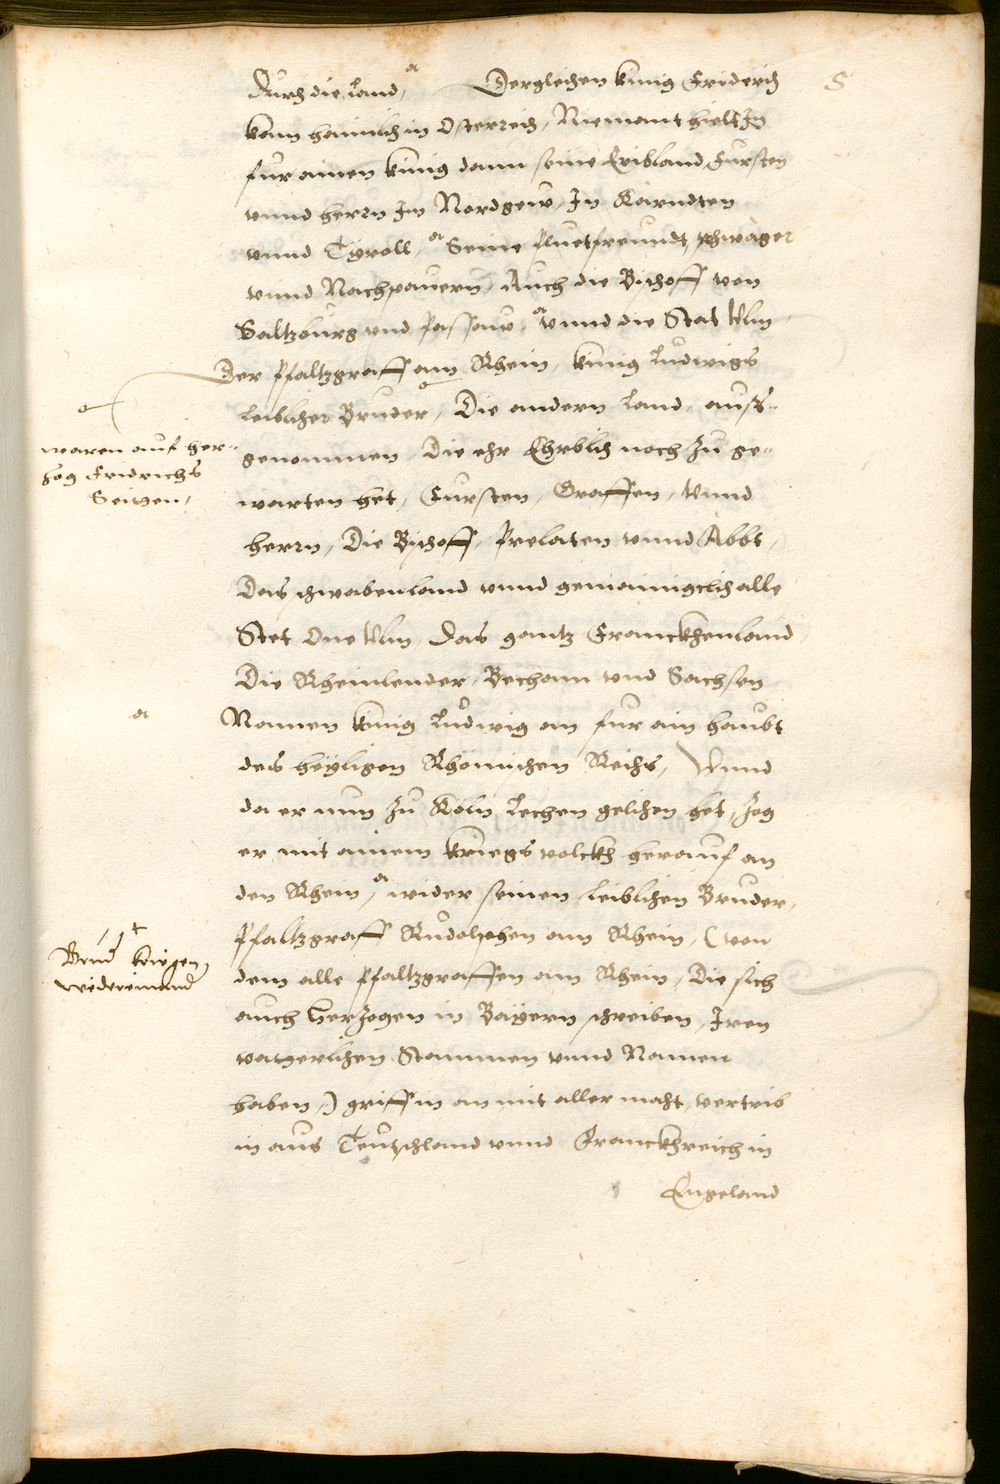 Durch die Land, a Dergleichen künig Friderich 5
kam haimlich in Osterreich, Niemant hielt In
fur ainen künig dann seine Eribland, Fürsten
vnnd herrn Im Nordgew, In Kärndten
vnnd Tyroll, a Seine pluetfreundt, schwäger
vnnd Nachpauern, Auch die Bischoff von
Saltzburg vnd Passaw, a vnnd die Stat Ulm
Der Pfaltzgraff am Rhein, künig Ludwigs
leiblicher Bruder, Die andern Land, auß¬
genommen, Die ehr Ehrblich noch zu ge¬
warten het, Fürsten, Graffen, Vnnd
herrn, Die Bischoff, Prelaten vnnd Äbbt,
Das schwabenland vnnd gemainigclich alle
Stet One Ulm, Das gantz Franckhenland
Die Rheinlender, Becham vnd Sachsen
Namen künig Ludwig an fur ain haubt
des heyligen Rhömischen Reichs, Vnnd
da er nun Zu Köln Lechen gelichen het, Zog
er mit ainem kriegs volckh herauf an
den Rhein, a wider seinen leiblichen Bruder,
Pfaltzgraff Rudolphen am Rhein, (von
dem alle Pfaltzgraffen am Rhein, Die sich
auch Herzogen in Bayern schreiben, Iren
vatterlichen Stammen vnnd Namen
haben,) griff in an mit aller macht, vertrib
in aus Teutschland vnnd Franckhreich in
Engeland
a
waren auf her¬
zog Fridrichs
Seitten,
a
Brud kriegen
widereinand